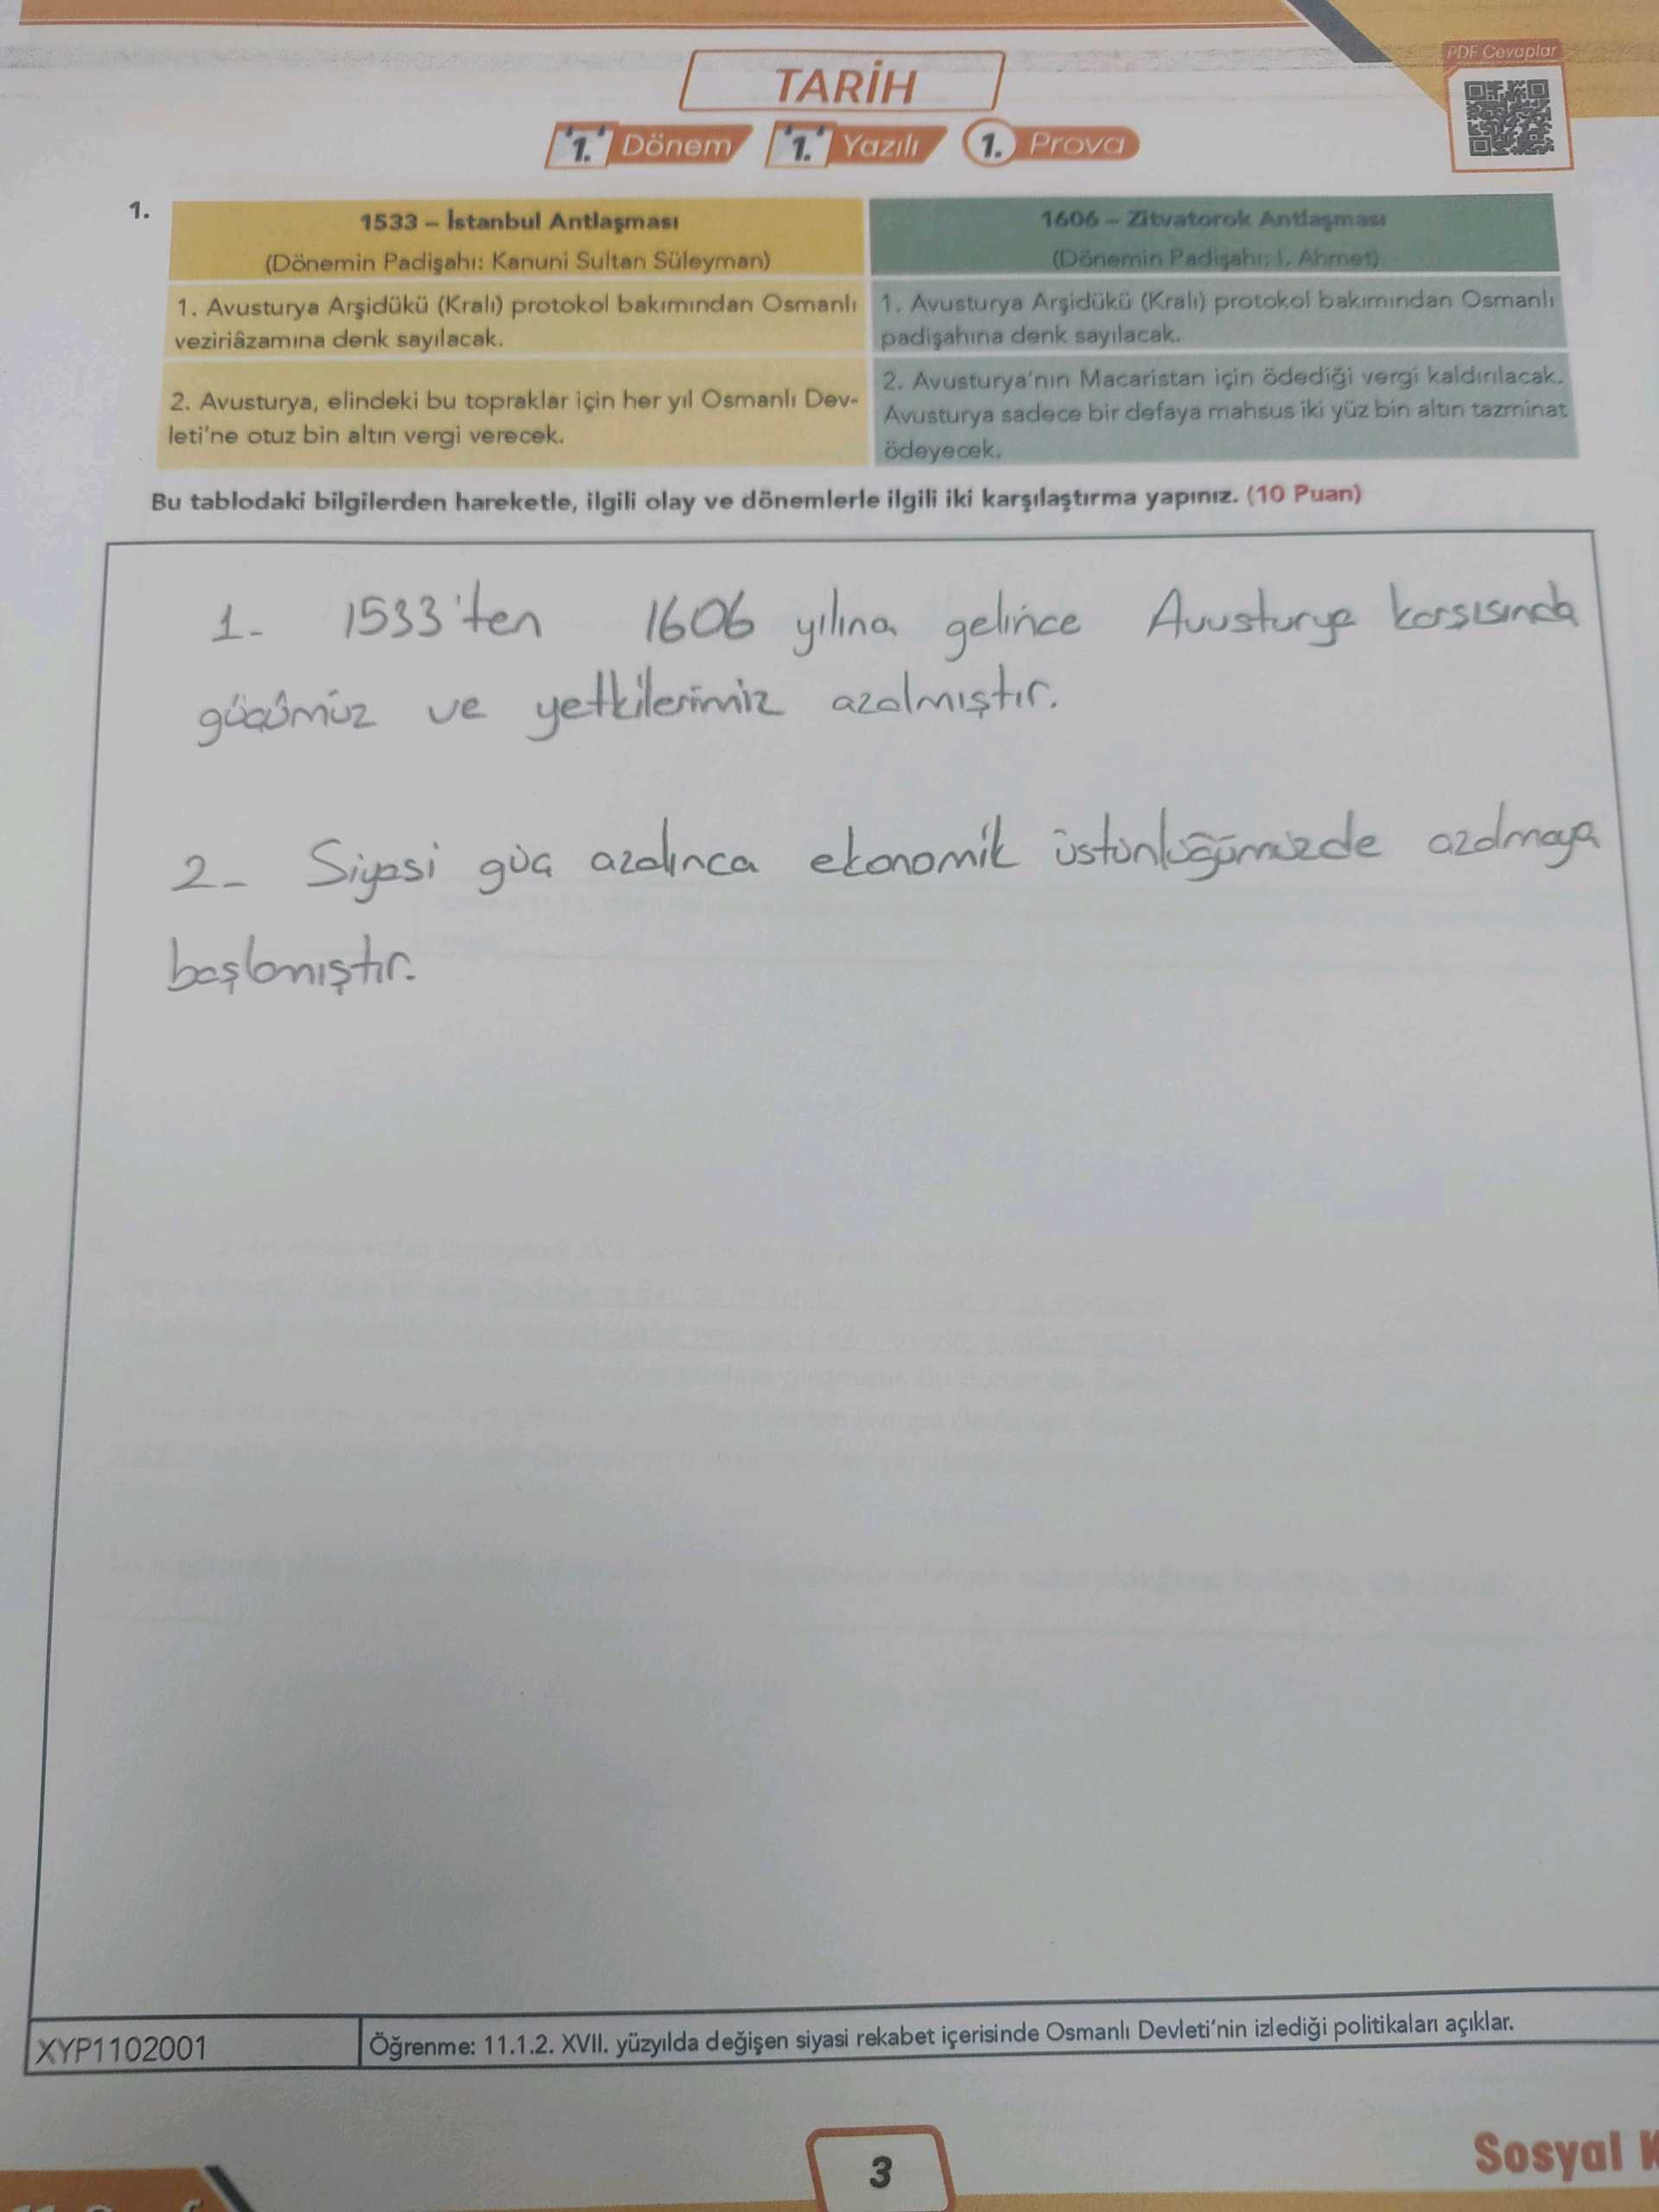 PDF Cevaplar
TARİH
1. Dönem 1. Yazılı 1. Prova
1.
1533 – İstanbul Antlaşması
(Dönemin Padişahı: Kanuni Sultan Süleyman)
1. Avusturya Arşidükü (Kralı) protokol bakımından Osmanlı
veziriâzamına denk sayılacak.
2. Avusturya, elindeki bu topraklar için her yıl Osmanlı Dev-
leti’ne otuz bin altın vergi verecek.
1606 – Zitvatorok Antlaşması
(Dönemin Padişahı: I. Ahmet)
1. Avusturya Arşidükü (Kralı) protokol bakımından Osmanlı
padişahına denk sayılacak.
2. Avusturya’nın Macaristan için ödediği vergi kaldırılacak.
Avusturya sadece bir defaya mahsus iki yüz bin altın tazminat
ödeyecek.
Bu tablodaki bilgilerden hareketle, ilgili olay ve dönemlerle ilgili iki karşılaştırma yapınız. (10 Puan)
1- 1533'ten 1606 yılına gelince Avusturya karsısında
gücümüz ve yetkilerimiz azalmıştır.
2- Siyasi güç azalınca ekonomik üstünlüğümüzde azalmaya
başlamıştır.
XYP1102001
Öğrenme: 11.1.2. XVII. yüzyılda değişen siyasi rekabet içerisinde Osmanlı Devleti’nin izlediği politikaları açıklar.
3
Sosyal